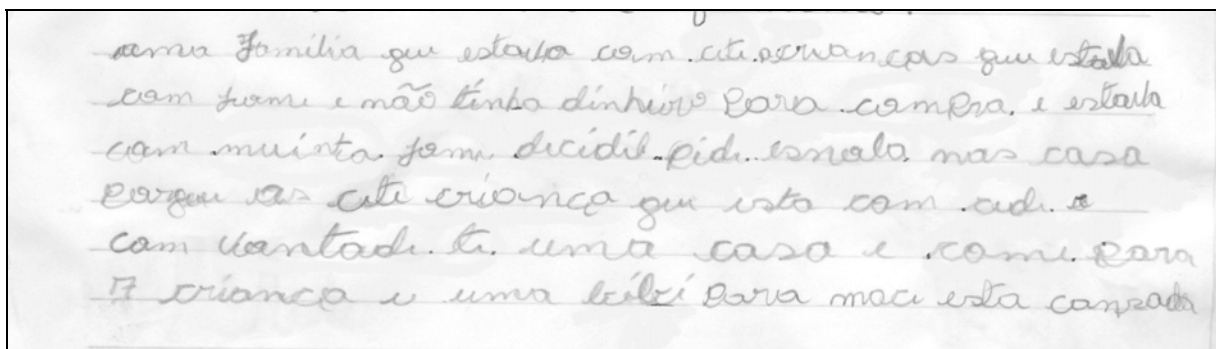 uma família que estava com cete crianças que estava
com fome e não tinha dinheiro para compra. e estava
com muinta fome decidil pidi esmola nas casa
porque as cete criança que esta com cede e
com vontade te uma casa e come para
7 criança e uma bibzi para mace esta canzada